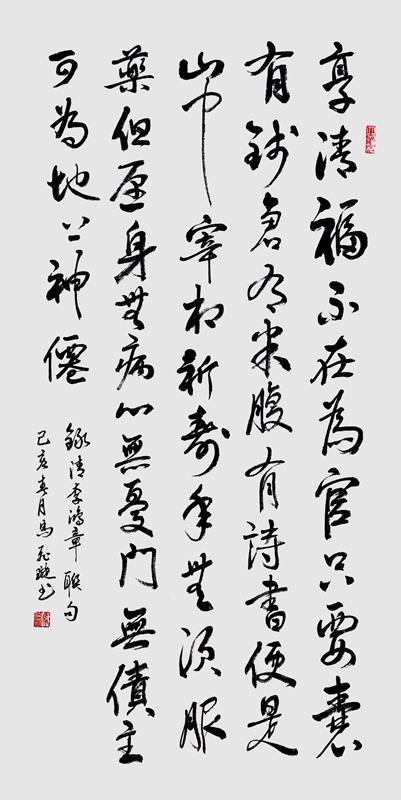 享清福不在為官只要囊
有錢倉有米腹有詩書便是
山中宰相祈壽年無須服
藥但愿身無病心無憂門無債主
可為地上神僊
錄清李鴻章聯句
己亥春月馬书